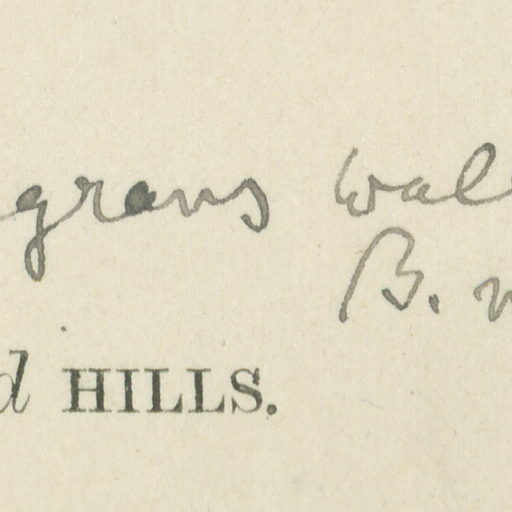 grans wal
B.
d HILLS.